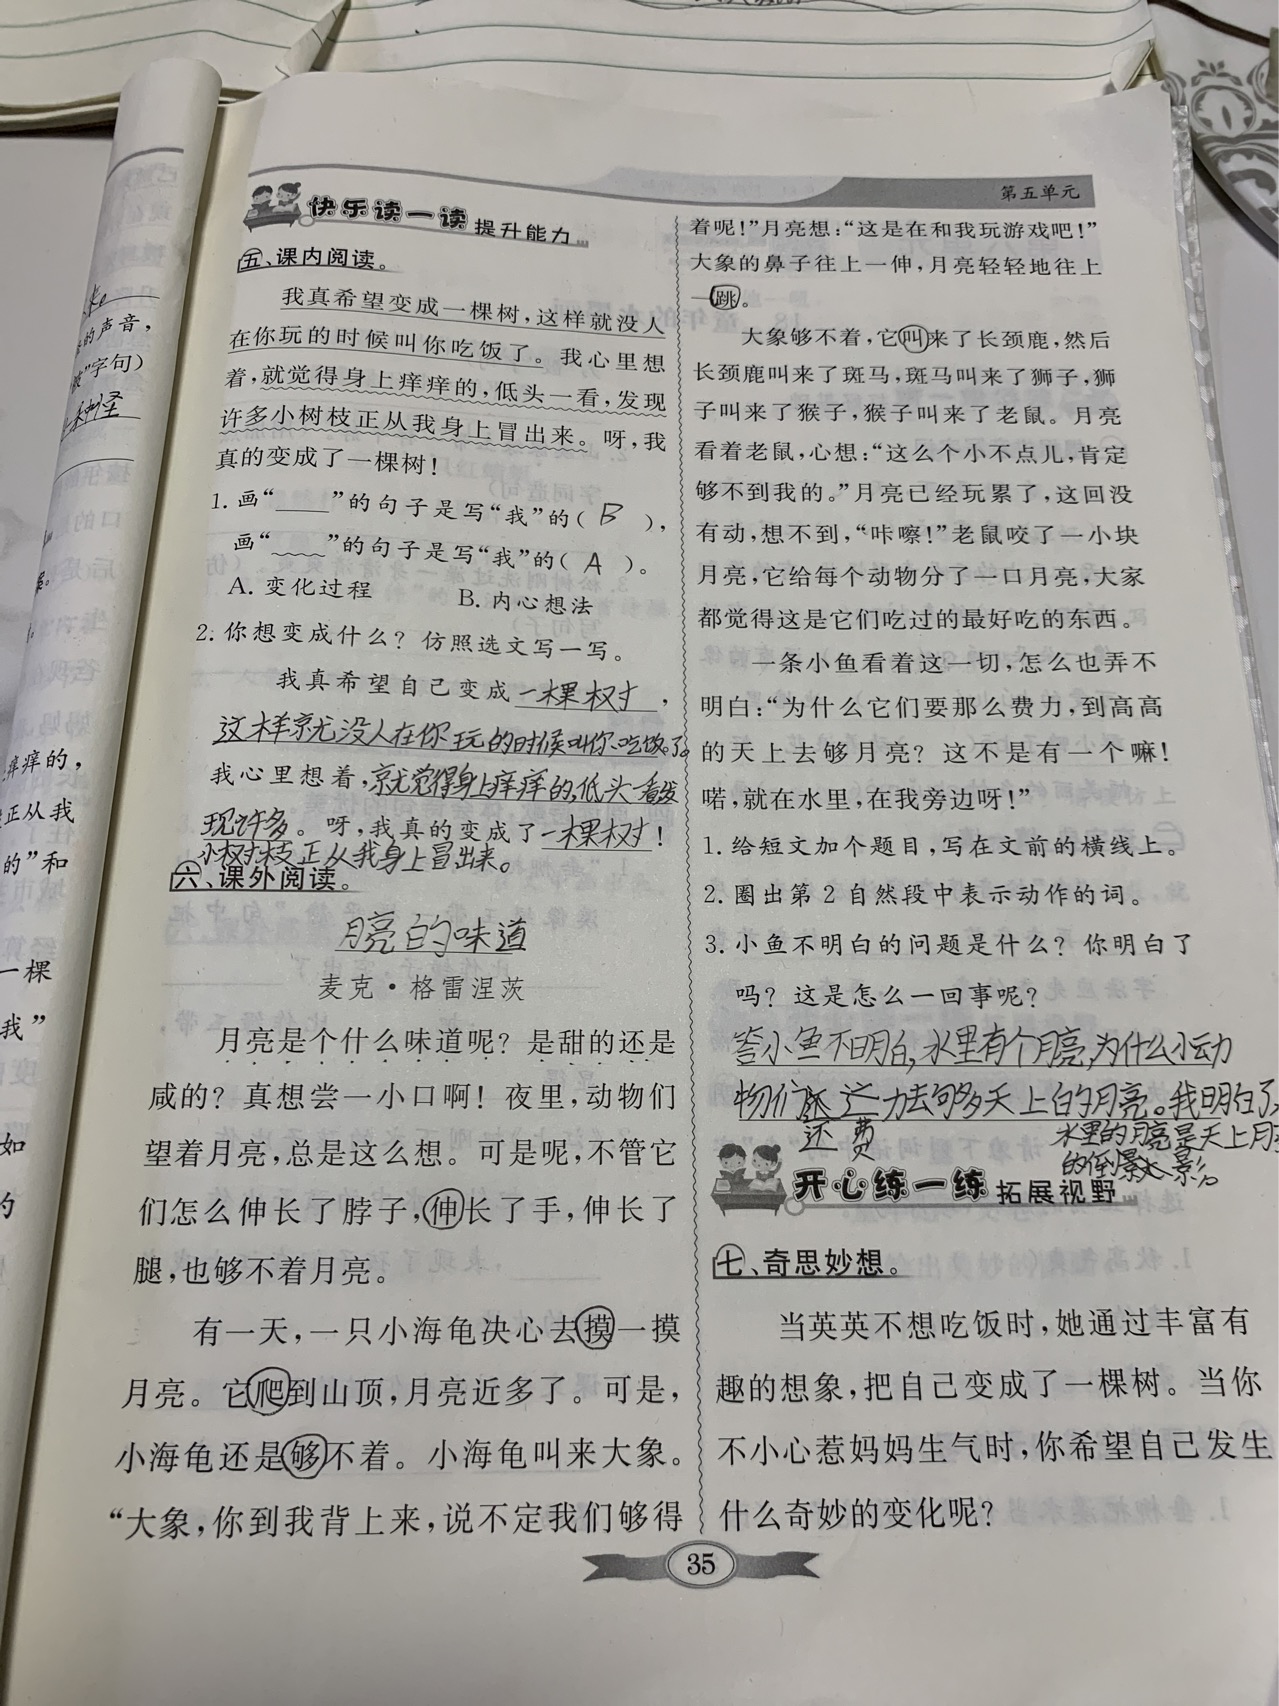 第五单元
快乐读一读 提升能力
五、课内阅读。
我真希望变成一棵树，这样就没人
在你玩的时候叫你吃饭了。我心里想
着，就觉得身上痒痒的，低头一看，发现
许多小树枝正从我身上冒出来。呀，我
真的变成了一棵树！
1. 画“____”的句子是写“我”的（ B ），
画“﹏﹏”的句子是写“我”的（ A ）。
A. 变化过程 B. 内心想法
2. 你想变成什么？仿照选文写一写。
我真希望自己变成一棵树，
这样就没人在你玩的时候叫你吃饭了。
我心里想着，就觉得身上痒痒的，低头一看发
现许多。呀，我真的变成了一棵树！
小树枝正从我身上冒出来。
六、课外阅读。
月亮的味道
麦克·格雷涅茨
月亮是个什么味道呢？是甜的还是
咸的？真想尝一小口啊！夜里，动物们
望着月亮，总是这么想。可是呢，不管它
们怎么伸长了脖子，伸长了手，伸长了
腿，也够不着月亮。
有一天，一只小海龟决心去摸一摸
月亮。它爬到山顶，月亮近多了。可是，
小海龟还是够不着。小海龟叫来大象。
“大象，你到我背上来，说不定我们够得
着呢！”月亮想：“这是在和我玩游戏吧！”
大象的鼻子往上一伸，月亮轻轻地往上
一跳。
大象够不着，它叫来了长颈鹿，然后
长颈鹿叫来了斑马，斑马叫来了狮子，狮
子叫来了猴子，猴子叫来了老鼠。月亮
看着老鼠，心想：“这么个小不点儿，肯定
够不到我的。”月亮已经玩累了，这回没
有动，想不到，“咔嚓！”老鼠咬了一小块
月亮，它给每个动物分了一口月亮，大家
都觉得这是它们吃过的最好吃的东西。
一条小鱼看着这一切，怎么也弄不
明白：“为什么它们要那么费力，到高高
的天上去够月亮？这不是有一个嘛！
喏，就在水里，在我旁边呀！”
1. 给短文加个题目，写在文前的横线上。
2. 圈出第 2 自然段中表示动作的词。
3. 小鱼不明白的问题是什么？你明白了
吗？这是怎么一回事呢？
答小鱼不明白，水里有个月亮，为什么小动
物们 力去够天上的月亮。我明白了
还 费
水里的月亮是天上月
的倒 影。
开心练一练 拓展视野
七、奇思妙想。
当英英不想吃饭时，她通过丰富有
趣的想象，把自己变成了一棵树。当你
不小心惹妈妈生气时，你希望自己发生
什么奇妙的变化呢？
35
的声音，
字句）
痒痒的，
正从我
的”和
一棵
我”
如
的